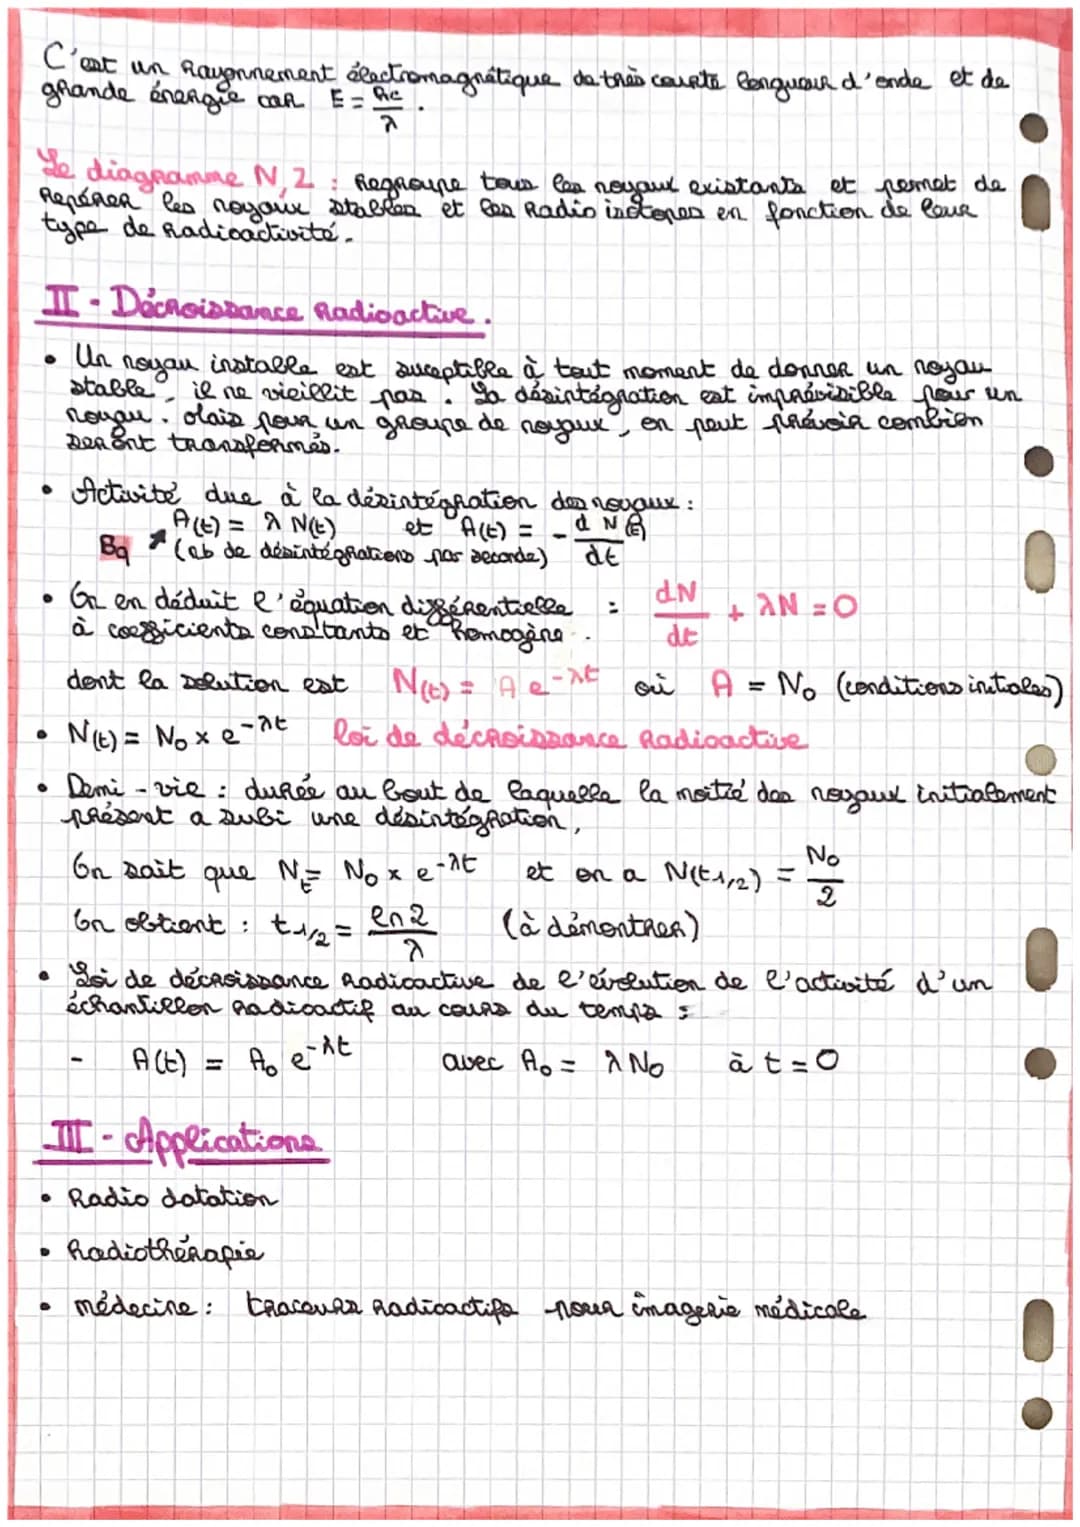 C'est un Rayonnement électromagnétique de très courte longueur d'onde et de
grande énergie car E = hc/λ.
Le diagramme N,Z : Regroupe tous les noyaux existants et permet de
Repérer les noyaux stables et les Radio isotopes en fonction de leur
type de Radioactivité.
II - Décroissance Radioactive.
• Un noyau instable est suceptible à tout moment de donner un noyau
stable, il ne vieillit pas. La désintégration est imprévisible pour un
noyau. Mais pour un groupe de noyaux, on peut prévoir combien
seront transformés.
• Activité due à la désintégration des noyaux :
A(t) = λ N(t) et A(t) = - d N(t)/dt
Bq ↗ (nb de désintégrations par seconde)
• On en déduit l'équation différentielle : dN/dt + λN = 0
à coefficients constants et homogène.
dont la solution est N(t) = A e^-λt où A = N₀ (conditions initiales)
• N(t) = N₀ x e^-λt loi de décroissance Radioactive
• Demi-vie : durée au bout de laquelle la moitié des noyaux initialement
présent a subi une désintégration,
On sait que N_t = N₀ x e^-λt et on a N(t₁/₂) = N₀/2
On obtient : t₁/₂ = ln2/λ (à démontrer)
• Loi de décroissance Radioactive de l'évolution de l'activité d'un
échantillon radioactif au cours du temps :
- A(t) = A₀ e^-λt avec A₀ = λ N₀ à t = 0
III - Applications
• Radio datation
• Radiothérapie
• médecine : traceurs Radioactifs pour imagerie médicale